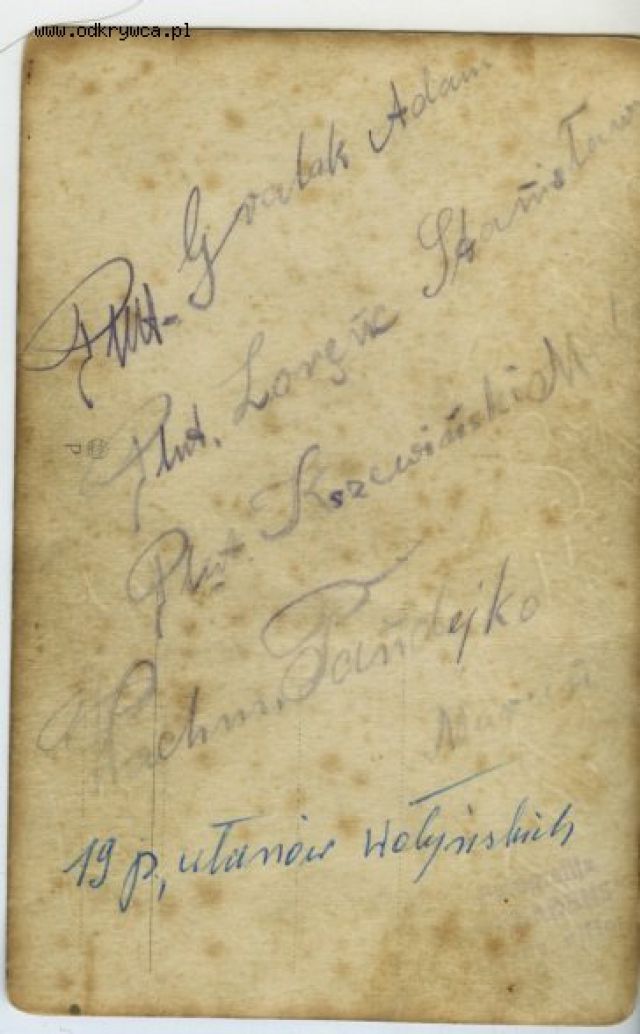 www.odkrywca.pl
Plut. Gralak Adam
Plut. Loręc Stanisław
Plut. Kszewiński M.
Wachm. Pańdejko
Marian
19 p, ułanów wołyńskich